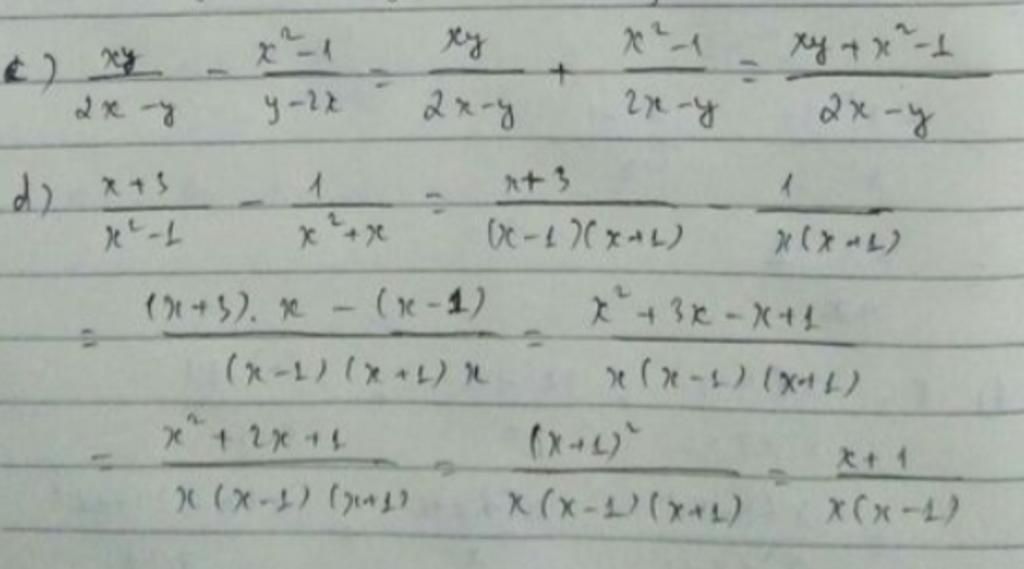 c) \frac{xy}{2x-y} - \frac{x^2-1}{y-2x} = \frac{xy}{2x-y} + \frac{x^2-1}{2x-y} = \frac{xy+x^2-1}{2x-y}
d) \frac{x+3}{x^2-1} - \frac{1}{x^2+x} = \frac{x+3}{(x-1)(x+1)} - \frac{1}{x(x+1)}
= \frac{(x+3).x-(x-1)}{(x-1)(x+1)x} = \frac{x^2+3x-x+1}{x(x-1)(x+1)}
= \frac{x^2+2x+1}{x(x-1)(x+1)} = \frac{(x+1)^2}{x(x-1)(x+1)} = \frac{x+1}{x(x-1)}